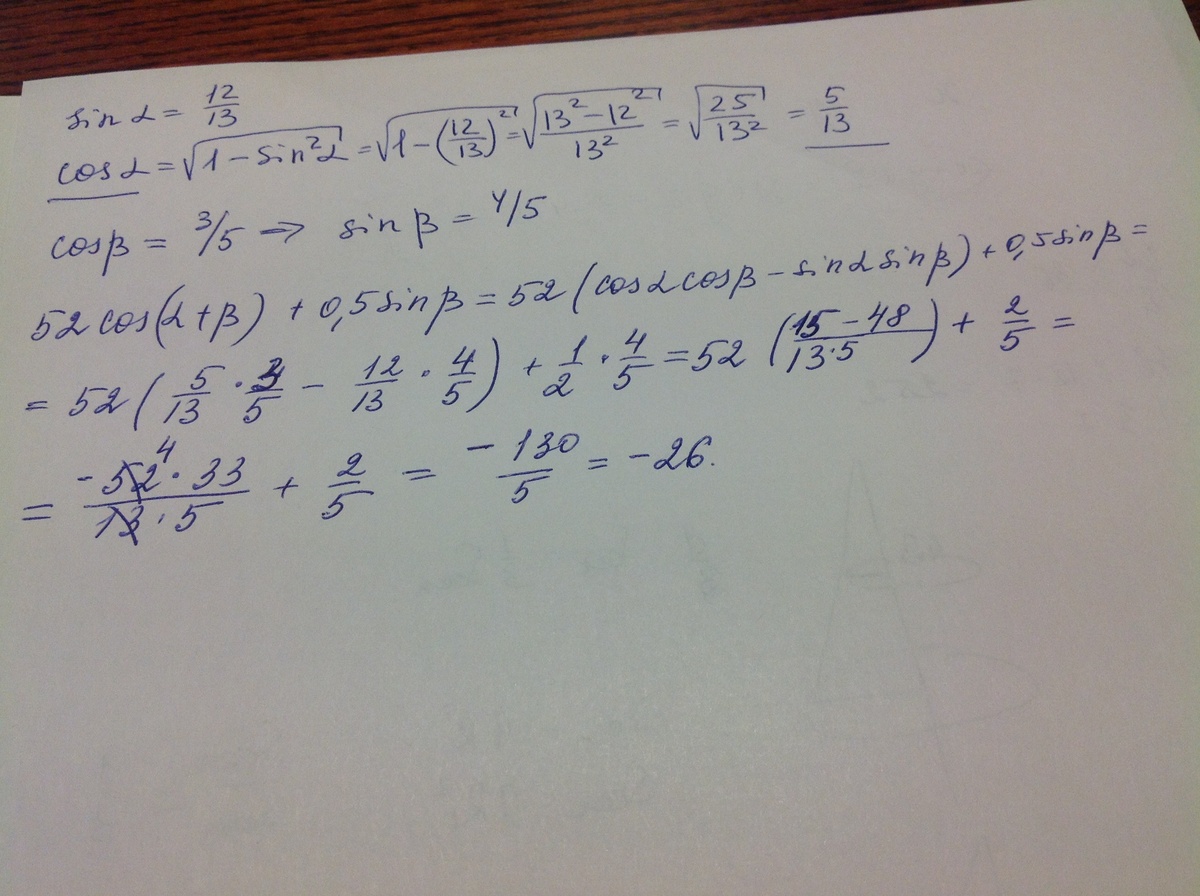 sin α = 12/13
cos α = √(1 - sin²α) = √(1 - (12/13)²) = √((13² - 12²)/13²) = √(25/13²) = 5/13
cos β = 3/5 ⇒ sin β = 4/5
52 cos(α + β) + 0,5 sin β = 52 (cos α cos β - sin α sin β) + 0,5 sin β =
= 52 (5/13 · 3/5 - 12/13 · 4/5) + 1/2 · 4/5 = 52 ((15 - 48)/(13·5)) + 2/5 =
= (-52 4 · 33)/(13 · 5) + 2/5 = -130/5 = -26.